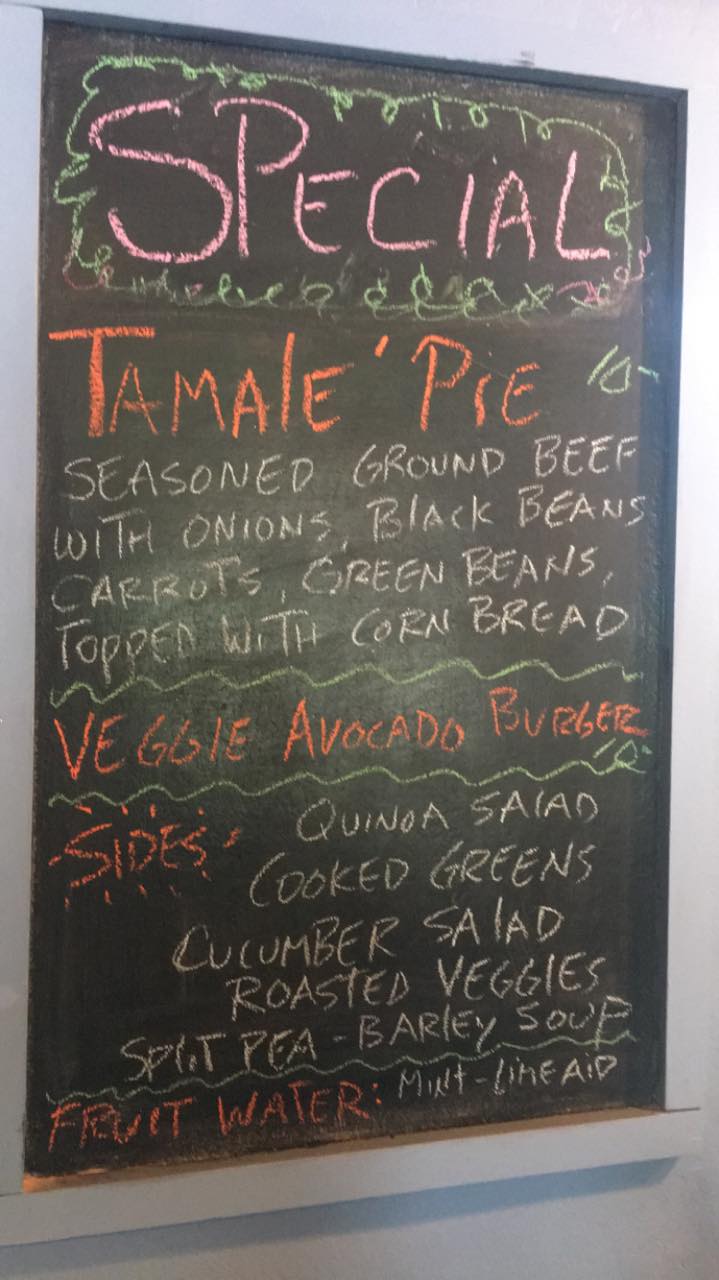 SPECIAL
TAMALE' PIE 10-
SEASONED GROUND BEEF
WITH ONIONS, BLACK BEANS
CARROTS, GREEN BEANS,
TOPPED WITH CORN BREAD
VEGGIE AVOCADO BURGER
10-
SIDES QUINOA SALAD
COOKED GREENS
CUCUMBER SALAD
ROASTED VEGGIES
SPLIT PEA - BARLEY SOUP
FRUIT WATER: MINT - LIMEAID